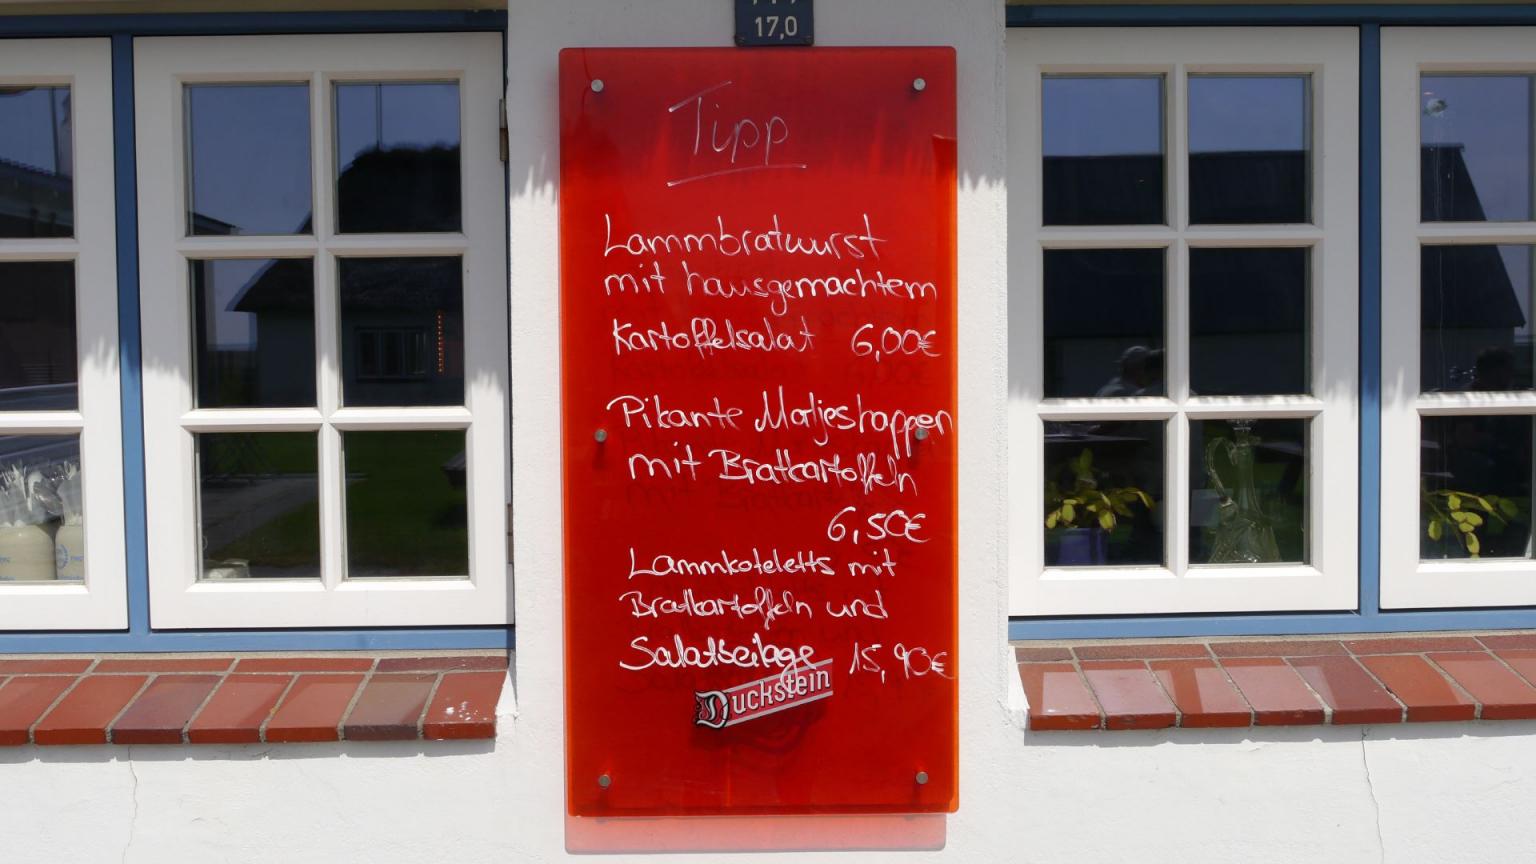 17,0
Tipp
Lammbratwurst
mit hausgemachtem
Kartoffelsalat 6,00€
Pikante Matjeshappen
mit Bratkartoffeln
6,50€
Lammkoteletts mit
Bratkartoffeln und
Salatbeilage 15,90€
Duckstein